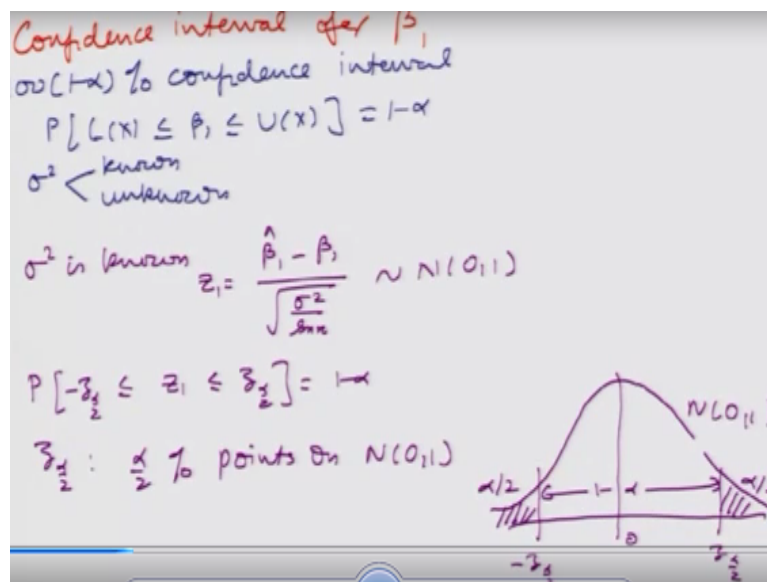 Confidence interval for β₁
00(1-α) % confidence interval
P[L(X) ≤ β₁ ≤ U(X)] = 1-α
σ² < known
unknown
σ² is known z₁ = (β̂₁ - β₁) / √(σ²/Sxx) ~ N(0,1)
P[-z_{α/2} ≤ z₁ ≤ z_{α/2}] = 1-α
z_{α/2} : α/2 % points on N(0,1)
N(0,1)
α/2 1-α α/2
-z_{α/2} 0 z_{α/2}